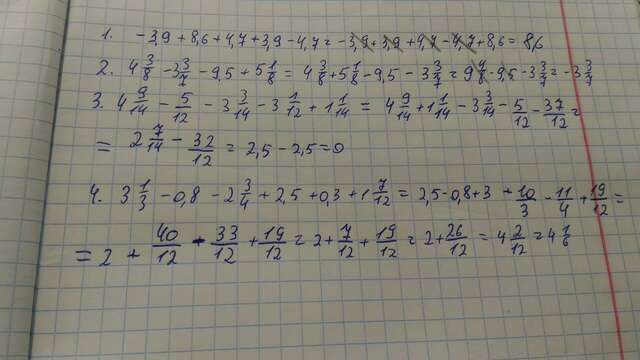 1. -3,9 + 8,6 + 4,7 + 3,9 - 4,7 = -3,9 + 3,9 + 4,7 - 4,7 + 8,6 = 8,6
2. 4 3/8 - 3 3/7 - 9,5 + 5 1/8 = 4 3/8 + 5 1/8 - 9,5 - 3 3/7 = 9 4/8 - 9,5 - 3 3/7 = -3 3/7
3. 4 9/14 - 5/12 - 3 3/14 - 3 1/12 + 1 1/14 = 4 9/14 + 1 1/14 - 3 3/14 - 5/12 - 37/12 =
= 2 7/14 - 32/12 = 2,5 - 2,5 = 0
4. 3 1/3 - 0,8 - 2 3/4 + 2,5 + 0,3 + 1 7/12 = 2,5 - 0,8 + 3 + 10/3 - 11/4 + 19/12 =
= 2 + 40/12 - 33/12 + 19/12 = 2 + 7/12 + 19/12 = 2 + 26/12 = 4 2/12 = 4 1/6